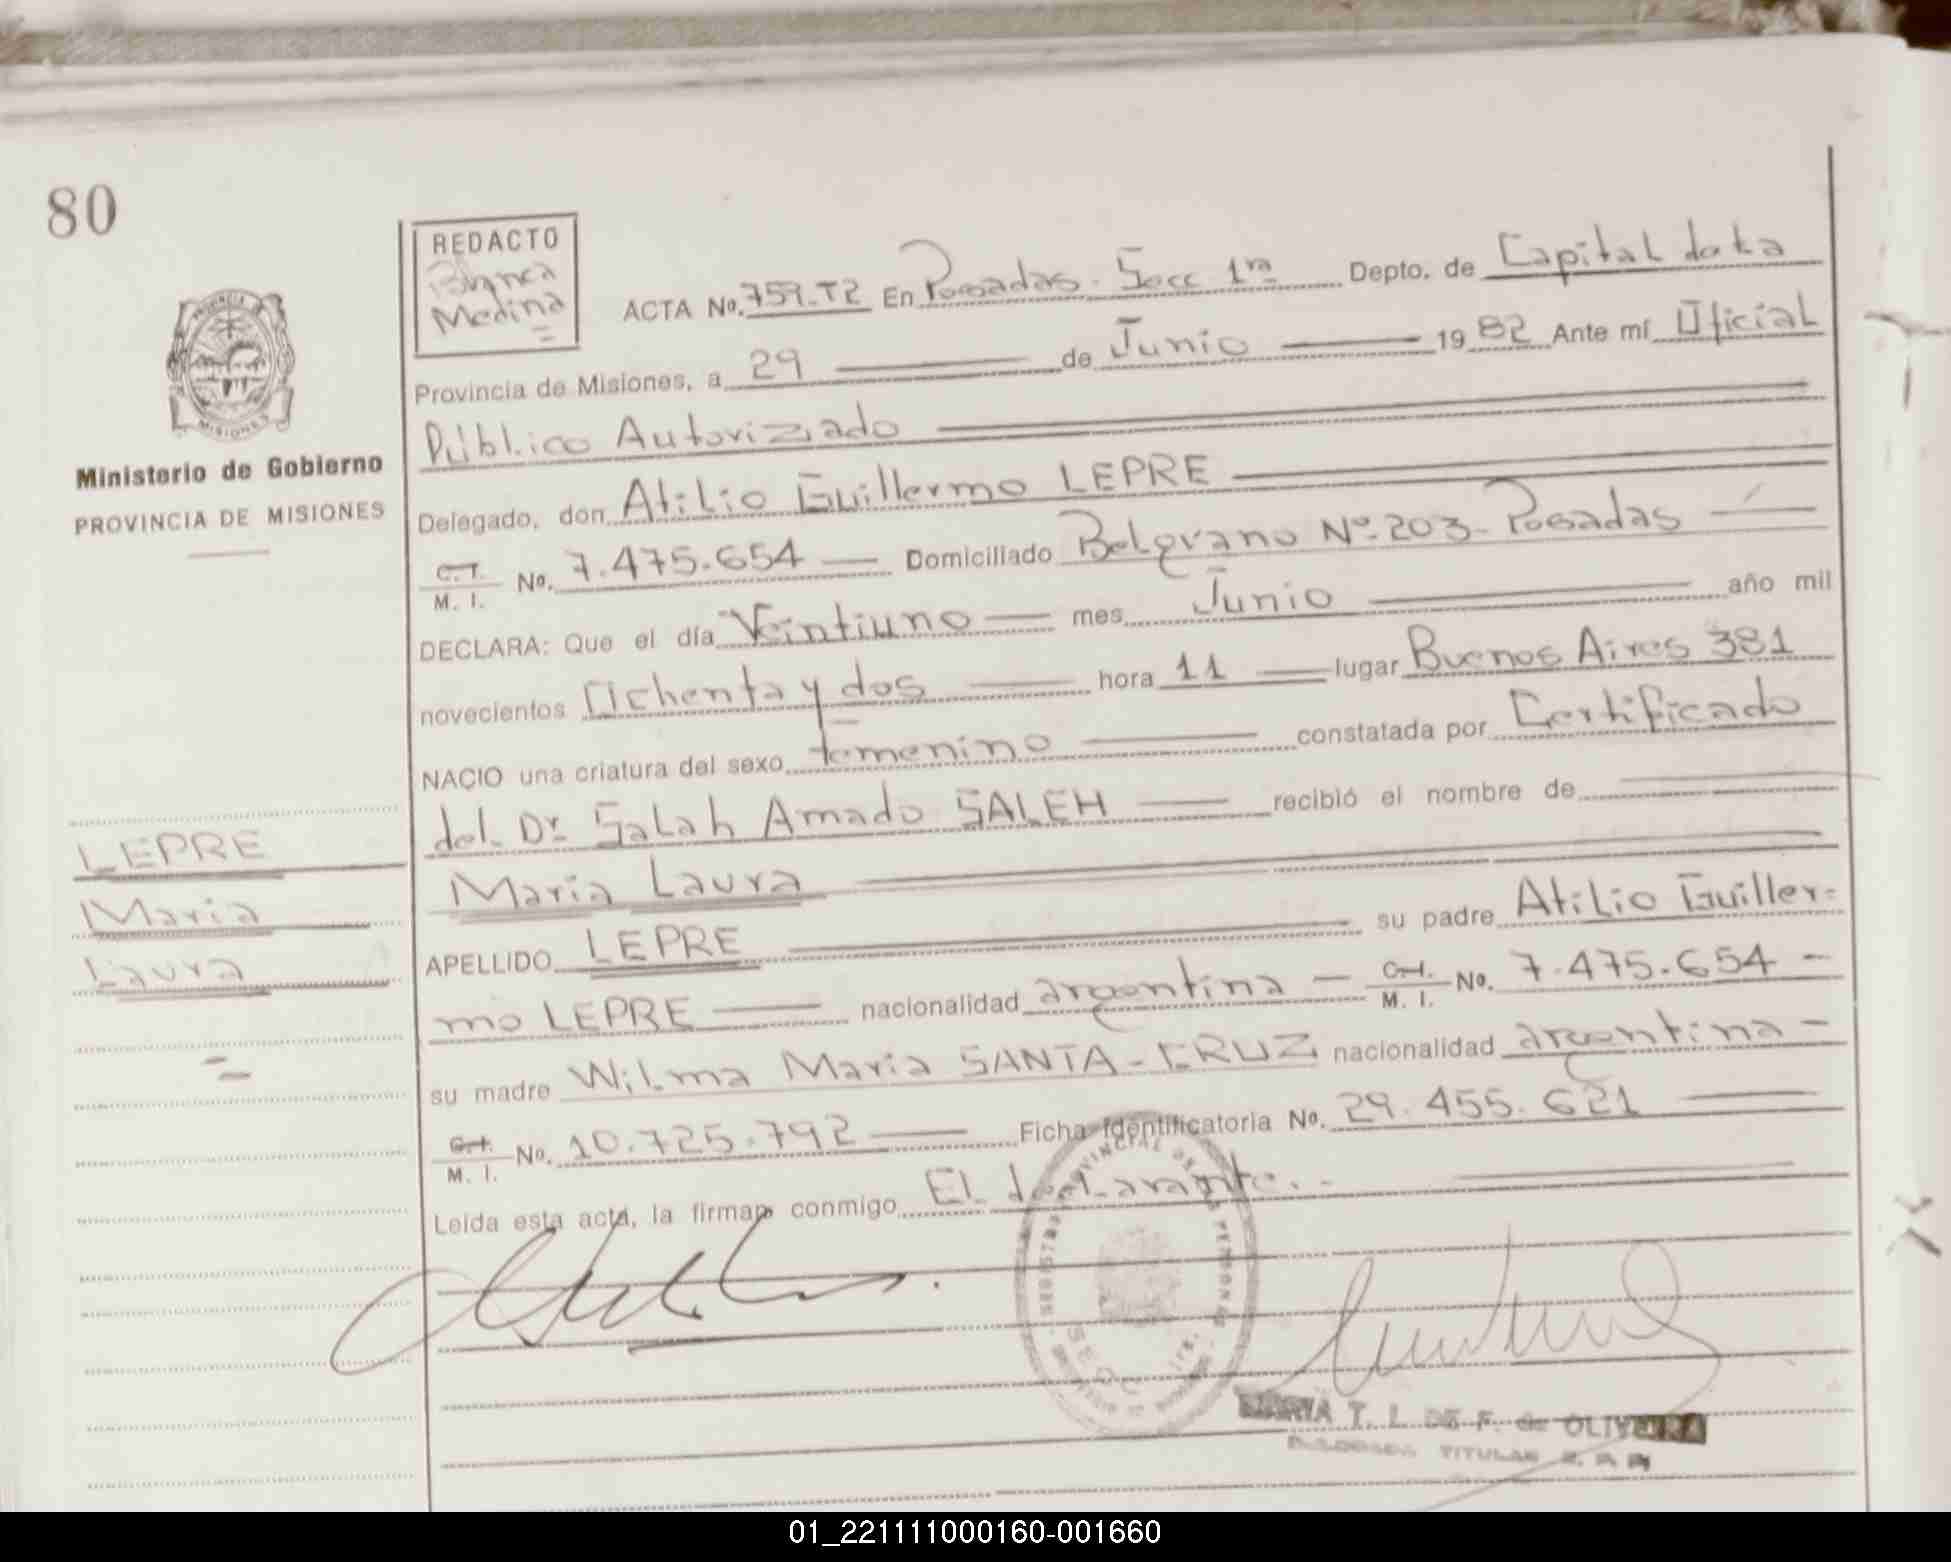 80
REDACTO
Blanca
Medina
ACTA No. 759-T2 En Posadas - Secc 1ra Depto. de Capital de la
Provincia de Misiones, a 29 de Junio 1982 Ante mí Oficial
Público Autorizado
Delegado, don Atilio Guillermo LEPRE
C.I. M. I. No. 7.475.654 Domiciliado Belgrano Nº 203 - Posadas
DECLARA: Que el día Veintiuno mes Junio año mil
novecientos Ochenta y dos hora 11 lugar Buenos Aires 381
NACIO una criatura del sexo femenino constatada por Certificado
del Dr Salah Amado SALEH recibió el nombre de
Maria Laura
APELLIDO LEPRE su padre Atilio Guiller=
mo LEPRE nacionalidad argentina - C.I. M. I. No. 7.475.654 -
su madre Wilma Maria SANTA-CRUZ nacionalidad argentina -
C.I. M. I. No. 10.725.792 Ficha Identificatoria No. 29.455.621
Leida esta acta, la firman conmigo El declarante.-
MISIONES
Ministerio de Gobierno
PROVINCIA DE MISIONES
LEPRE
Maria
Laura
MARIA T. L. DE F. de OLIVEIRA
TITULAR
01_221111000160-001660